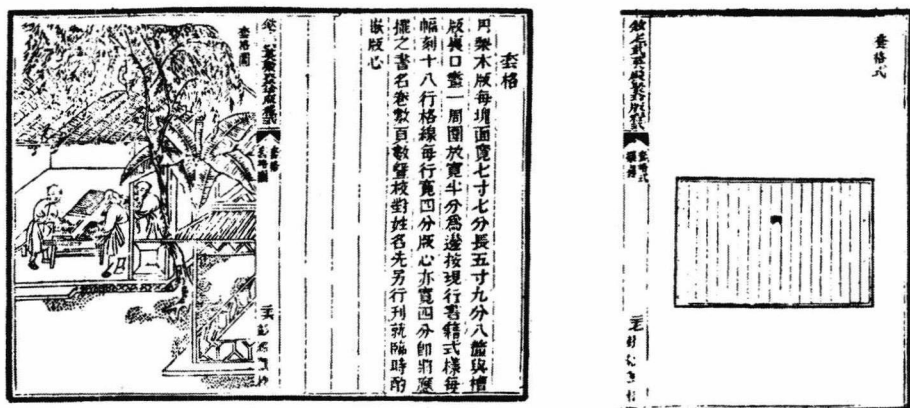 套格
用棃木版每塊面寬七寸七分長五寸九分八釐與槽
版裏口畫一周圍放寬半分為邊按現行書籍式樣每
幅刻十八行格線每行寬四分版心亦寬四分即將應
擺之書名卷數頁數暨校對姓名先另行刊就臨時酌
嵌版心
欽定武英殿聚珍版程式
套格
套格圖
套格圖
套格式
欽定武英殿聚珍版程式
套格式